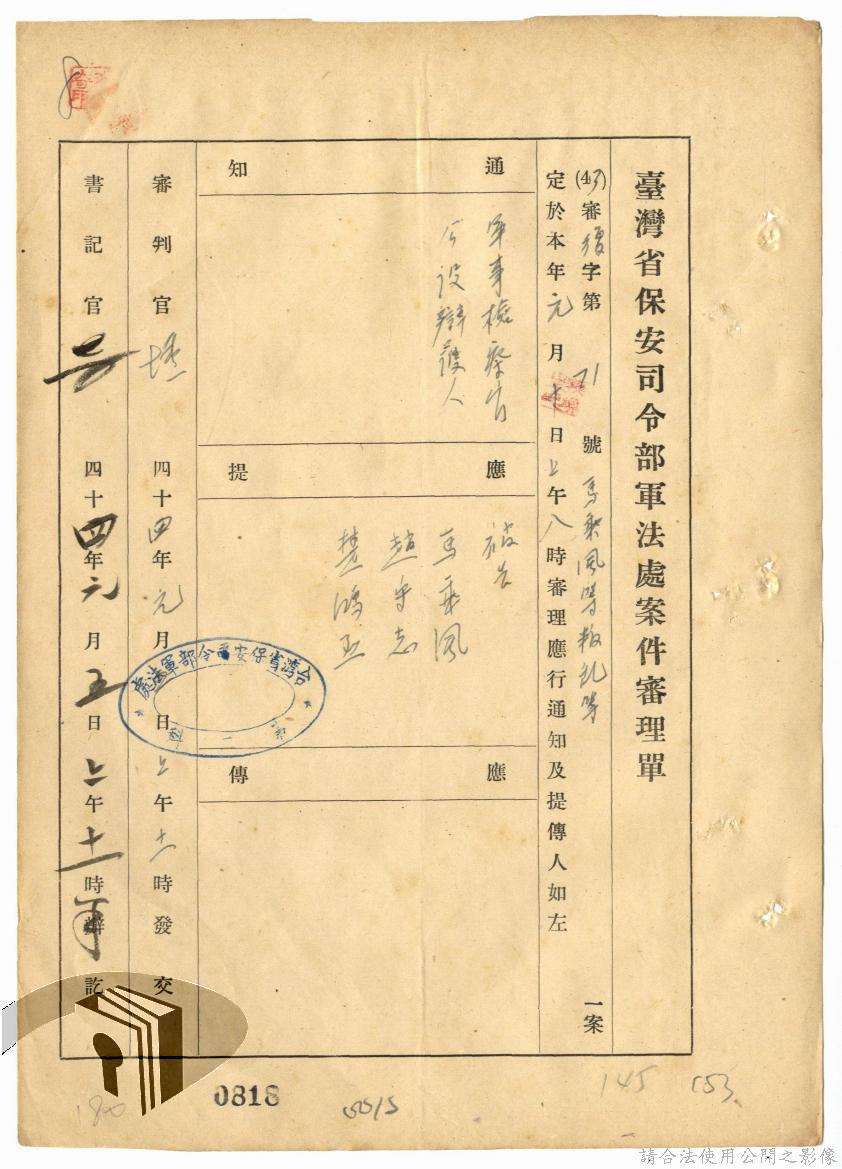 臺灣省保安司令部軍法處案件審理單
(43)審復字第71號馬乘風等叛乱等一案
定於本年元月七日上午八時審理應行通知及提傳人如左
通知
軍事檢察官
公設辯護人
應提
被告
馬乘風
趙守志
樊鴻
應傳
審判官
四十四年元月日上午十一時發交
書記官
四十四年元月五日上午十一時辦訖
台灣省保安司令部軍法處
0818
0515
145
153
180
請合法使用公開之影像